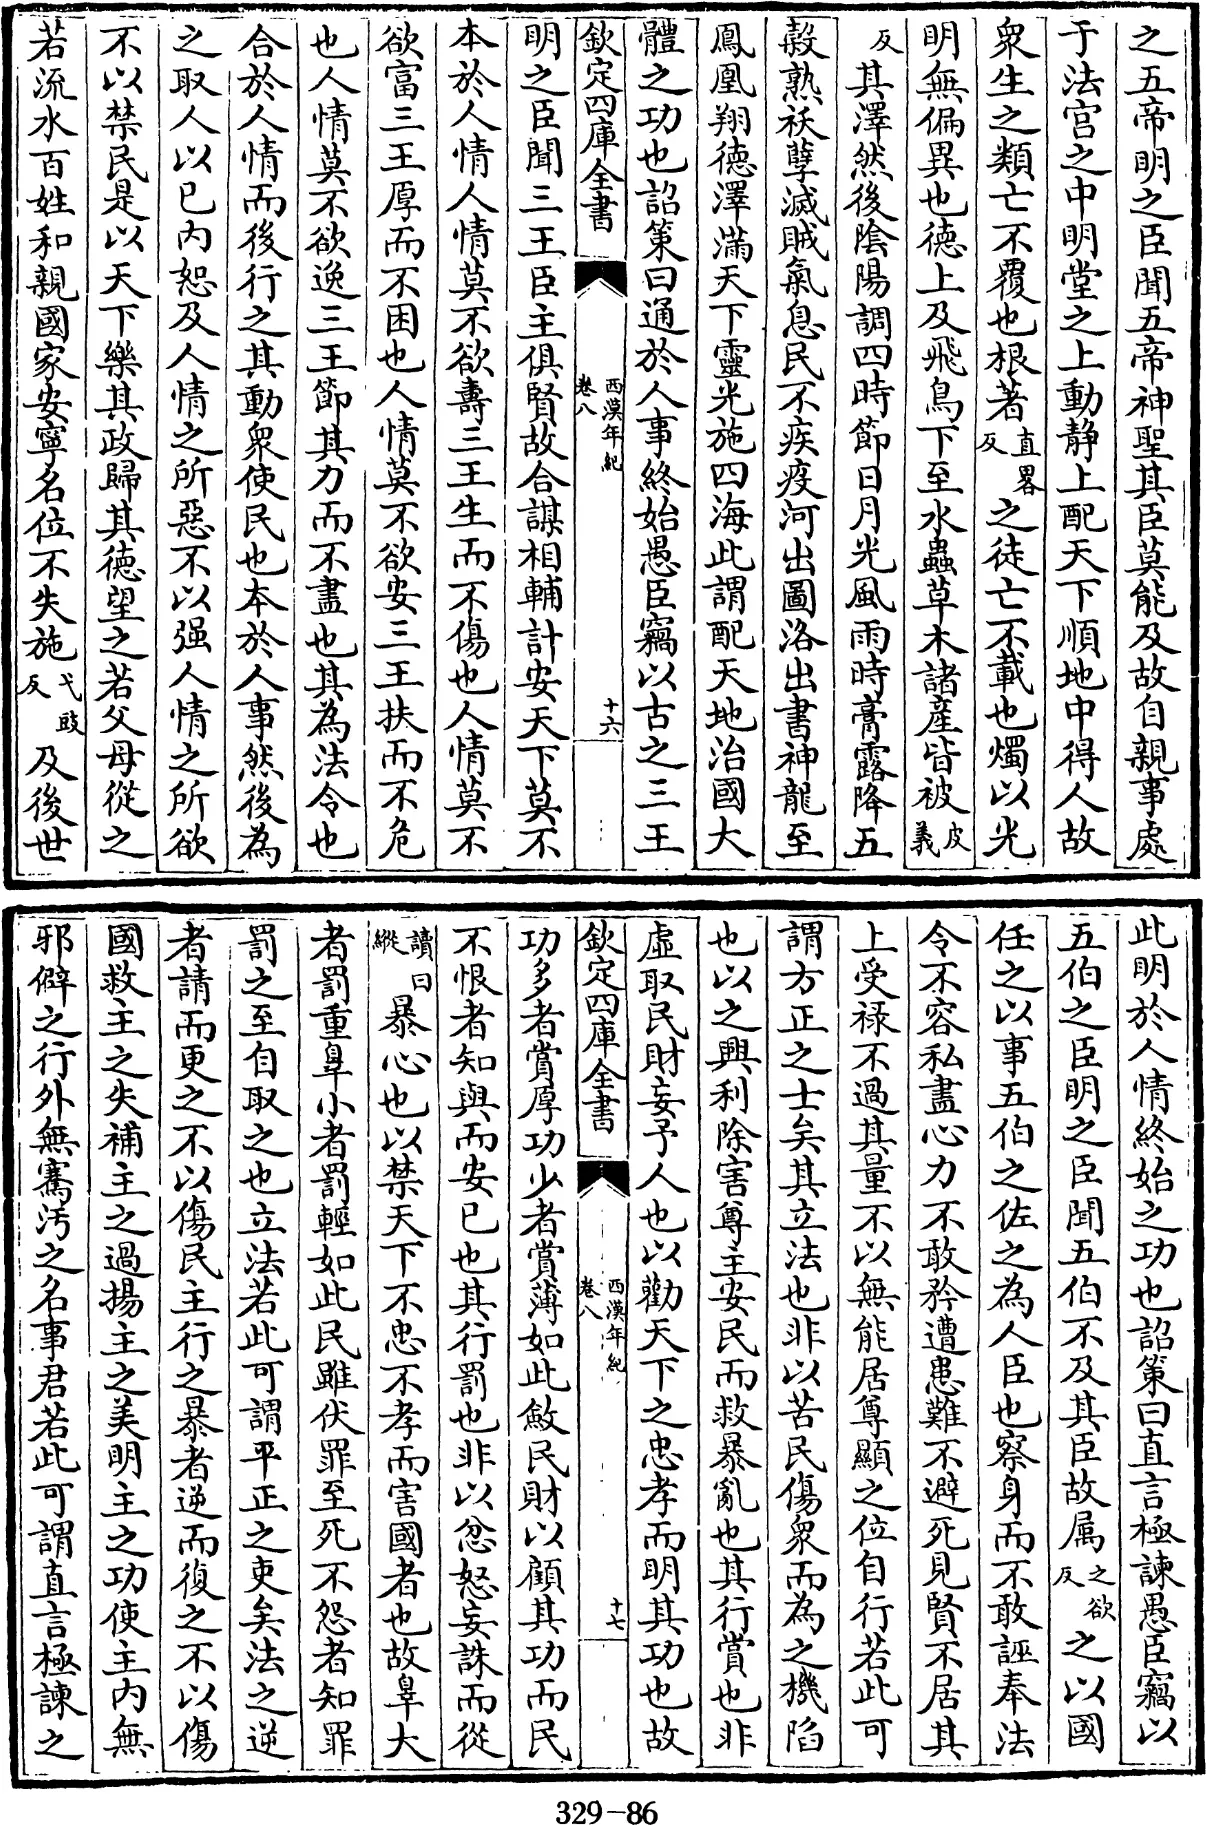 之五帝明之臣聞五帝神聖其臣莫能及故自親事處
于法宫之中明堂之上動静上配天下順地中得人故
衆生之類亡不覆也根著直畧反之徒亡不載也燭以光
明無偏異也德上及飛鳥下至水蟲草木諸産皆被皮義
反其澤然後陰陽調四時節日月光風雨時膏露降五
穀熟祅孽滅賊氣息民不疾疫河出圖洛出書神龍至
鳳凰翔德澤滿天下靈光施四海此謂配天地治國大
體之功也詔策曰通於人事終始愚臣竊以古之三王
欽定四庫全書
西漢年紀
卷八
十六
明之臣聞三王臣主俱賢故合謀相輔計安天下莫不
本於人情人情莫不欲壽三王生而不傷也人情莫不
欲富三王厚而不困也人情莫不欲安三王扶而不危
也人情莫不欲逸三王節其力而不盡也其為法令也
合於人情而後行之其動衆使民也本於人事然後為
之取人以己内恕及人情之所惡不以强人情之所欲
不以禁民是以天下樂其政歸其德望之若父母從之
若流水百姓和親國家安寧名位不失施弋豉反及後世
此明於人情終始之功也詔策曰直言極諫愚臣竊以
五伯之臣明之臣聞五伯不及其臣故属之欲反之以國
任之以事五伯之佐之為人臣也察身而不敢誣奉法
令不容私盡心力不敢矜遭患難不避死見賢不居其
上受禄不過其量不以無能居尊顯之位自行若此可
謂方正之士矣其立法也非以苦民傷衆而為之機陷
也以之興利除害尊主安民而救暴亂也其行賞也非
虛取民財妄予人也以勸天下之忠孝而明其功也故
欽定四庫全書
西漢年紀
卷八
十七
功多者賞厚功少者賞薄如此斂民財以顧其功而民
不恨者知與而安己也其行罰也非以忿怒妄誅而從
讀曰縱暴心也以禁天下不忠不孝而害國者也故辠大
者罰重辠小者罰輕如此民雖伏罪至死不怨者知罪
罰之至自取之也立法若此可謂平正之吏矣法之逆
者請而更之不以傷民主行之暴者逆而復之不以傷
國救主之失補主之過揚主之美明主之功使主内無
邪僻之行外無騫汚之名事君若此可謂直言極諫之
329-86